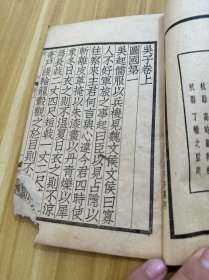 杭縣 高時顯 輯校
杭縣 丁輔之 監造
吳子卷上
圖國第一
吳起儒服以兵機見魏文侯文侯曰寡
人不好軍旅之事起曰臣以見占隱以
往察來主君何言與心違今君四時使
斬離皮革掩以朱漆畫以丹青爍以犀
象冬日衣之則不溫夏日衣之則不涼
爲長戟二丈四尺短戟一丈二尺
戶縵輪籠轂觀之於目則不